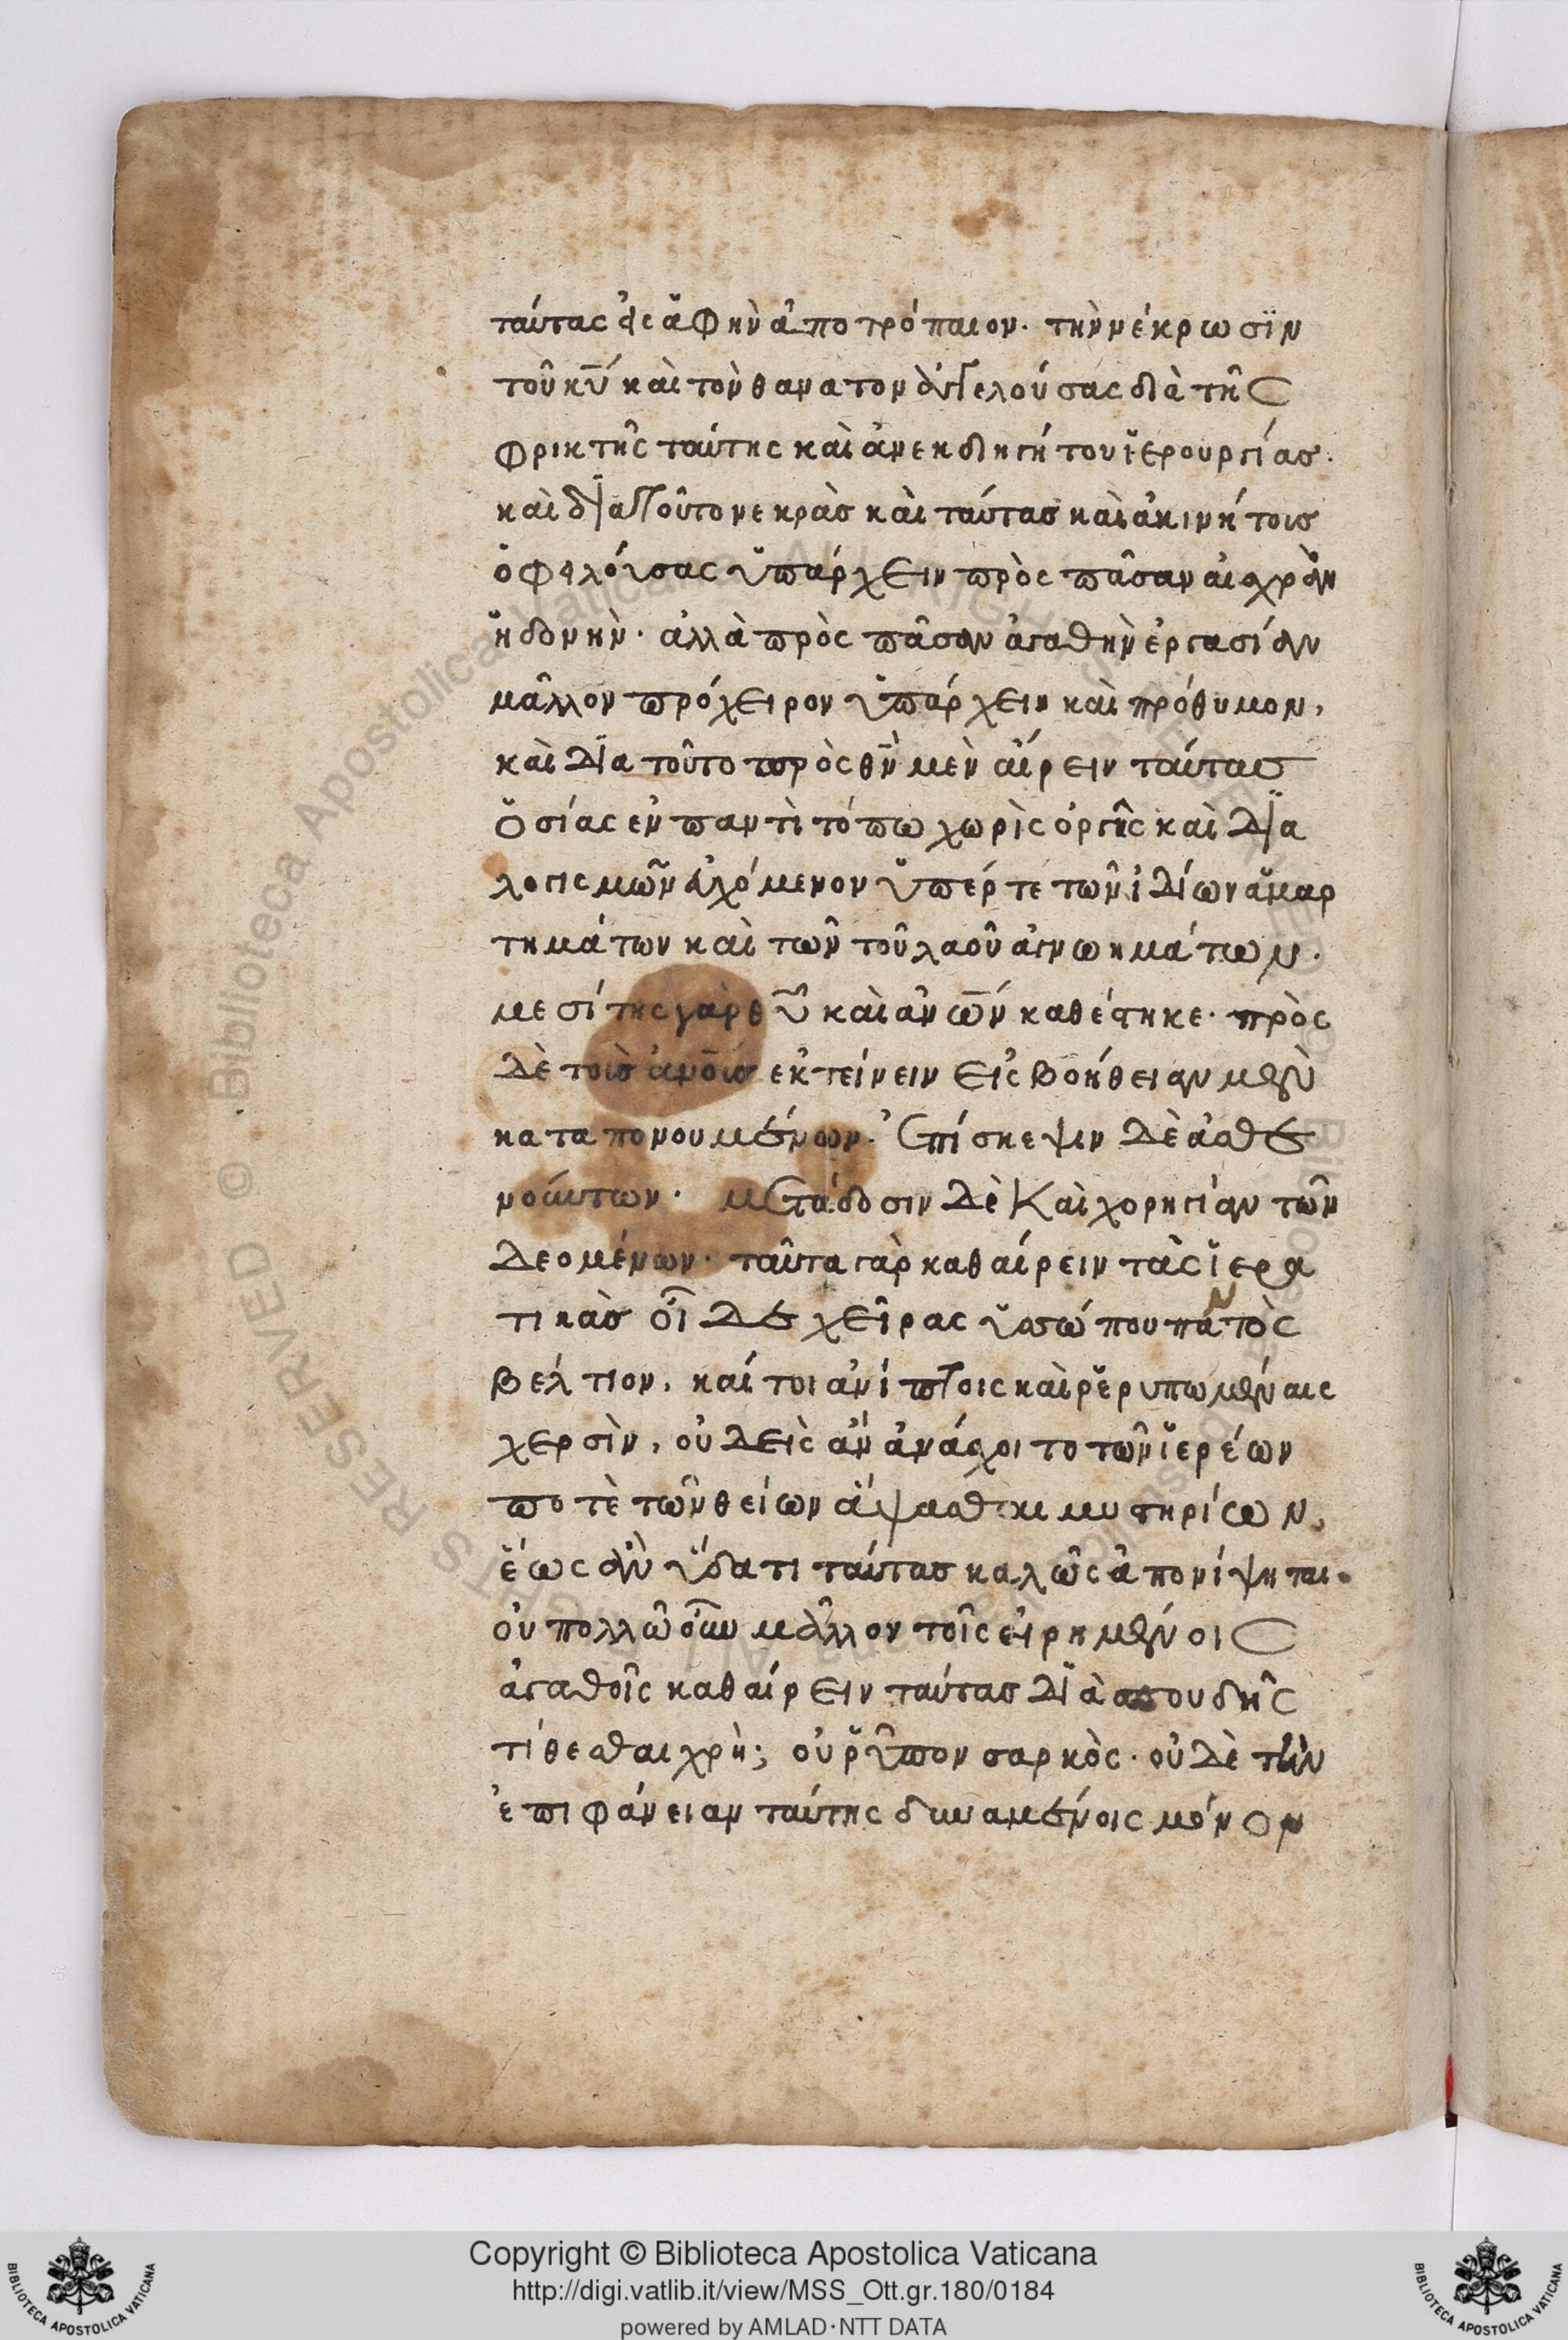 ταύτας εἰς ἁφὴν ἀποτρόπαιον· τὴν νέκρωσϊν
τοῦ κῡ καὶ τὸν θανατον ἐκτελούσας διὰ τῆς
φρικτῆς ταύτης καὶ ἀνεκδηγήτου ἱερουργίας·
καὶ δϊατοῦτο νεκρὰς καὶ ταύτας καὶ ἀκινήτοις
ὀφειλούσας ὑπάρχειν πρὸς πᾶσαν αἰσχρὰν
ἡδονὴν· ἀλλὰ πρὸς πᾶσαν ἀγαθὴν ἐργασίαν
μᾶλλον πρόχειρον ὑπάρχειν καὶ πρόθυμον,
καὶ δϊα τοῦτο πρὸς θν̄ μὲν αἴρειν ταύτας
ὁσίας ἐν παντὶ τόπω χωρὶς ὀργῆς καὶ δϊα
λογισμῶν εὐχόμενον ὑπέρ τε τῶν ἰδίων ἁμαρ
τημάτων καὶ τῶν τοῦ λαοῦ ἀγνωημάτων.
μεσίτης γὰρ θῡ καὶ ἀνω̄ν καθέστηκε· πρὸς
δὲ τοὺς ἀνο̄ις ἐκτείνειν εἰς βοήθειαν μὲν
καταπονουμένων. Ἐπίσκεψιν δὲ ἀσθε
νούντων· μετάδοσιν δὲ καὶ χορηγίαν τῶν
δεομένων· ταῦτα γὰρ καθαίρειν τὰς ἱερα
τικὰς οἶδε χεῖρας ὑσσώπου παντὸς
βέλτιον, καίτοι ἀνίπτοις καὶ ῥερυπωμέναις
χερσὶν, οὐδεὶς ἂν ἀνάσχοιτο τῶν ἱερέων
ποτὲ τῶν θείων ἅψασθαι μυστηρίων,
ἕως ἂν ὕδατι ταύτας καλῶς ἀπονίψηται.
οὐ πολλῶ οὖν μᾶλλον τοῖς εἰρημένοις
ἀγαθοῖς καθαίρειν ταύτας δϊὰ σπουδῆς
τίθεσθαι χρὴ; οὐ ῥύπον σαρκὸς· οὐδὲ τὴν
ἐπιφάνειαν ταύτης δυναμένοις μόνον